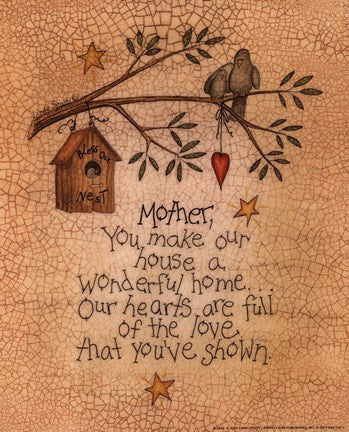 Bless Our
Nest
Mother,
You make our
house a
wonderful home....
Our hearts are full
of the love
that you've shown.